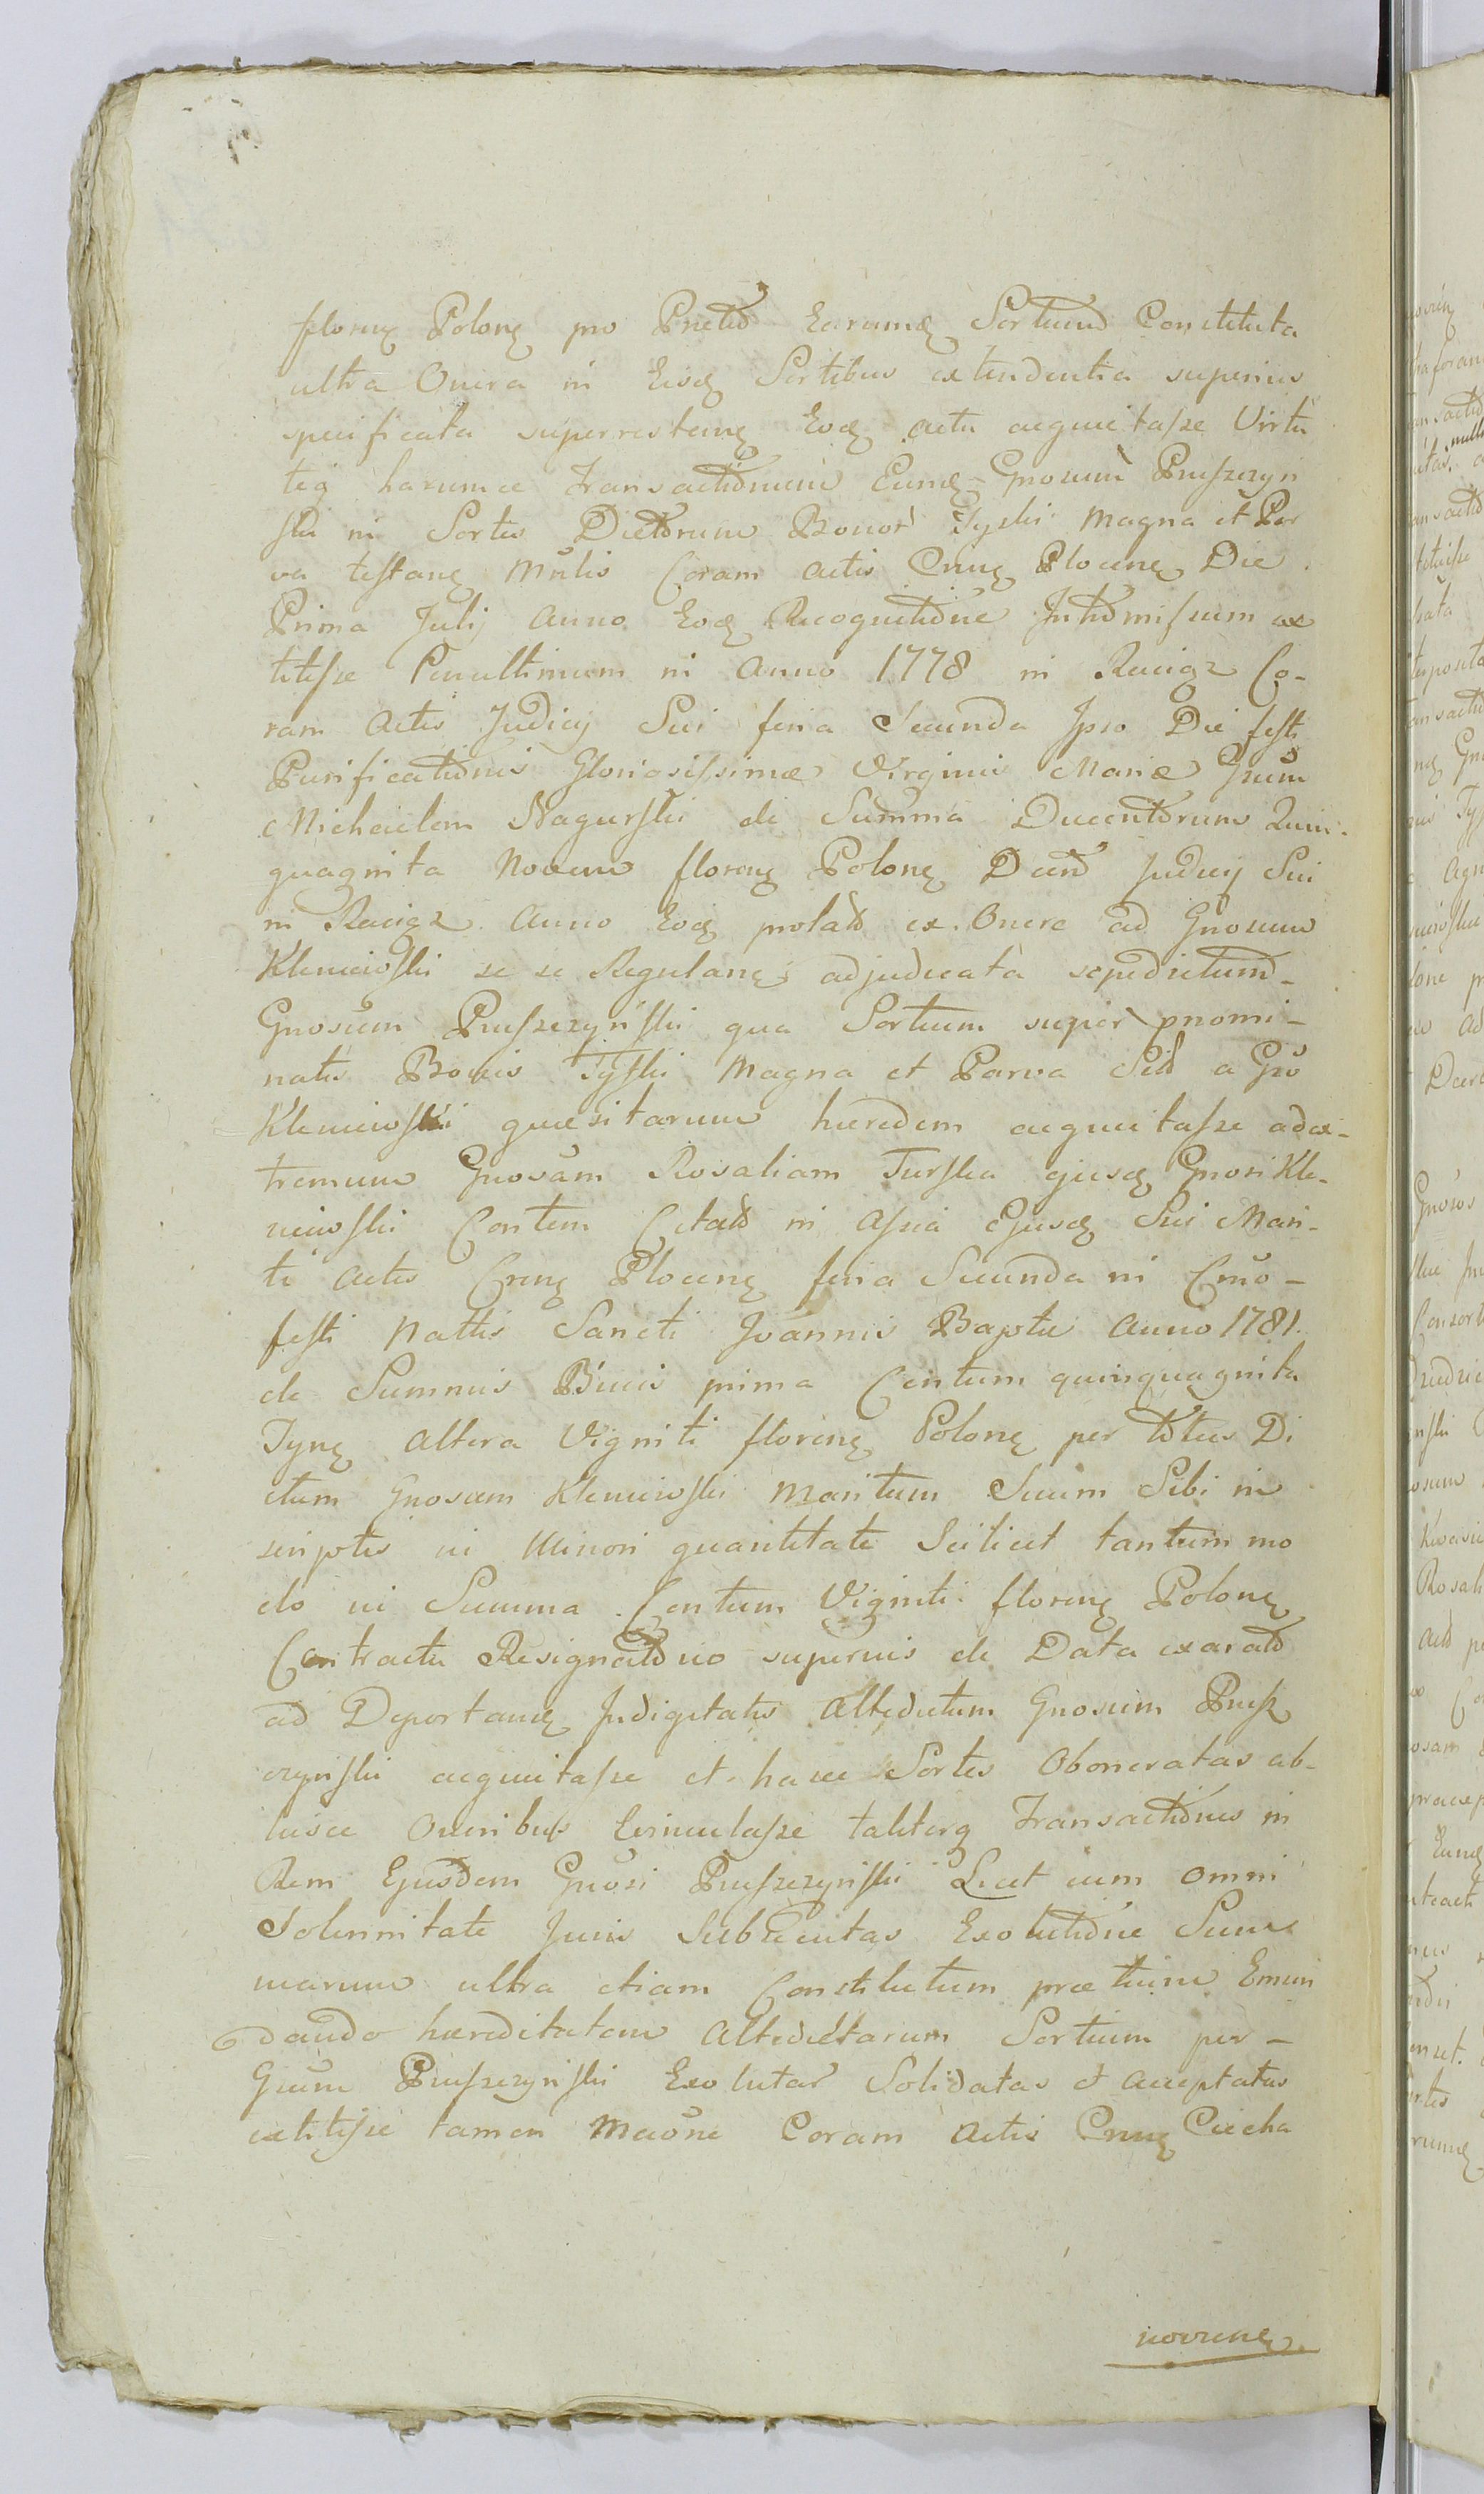 floreng Polong pro Pretio Earumq Sortium Constituta
ultra Onera in Eisq Sortibus extendentia superius
specificata superresteing Eoq actu acquietasse Virtu
teq harumce Transactionum Eumq Gnosum Pruszczyn
ski in Sortes Dictorum Bonor Tyski Magna et Par
va testang Mntis Coram Actis Crng Plocens Die
Prima Julij Anno Eoq Recognitione Intromissum ex
titisse Penultimum in Anno 1778 in Raciąz Co-
ram Actis Judicij Sui feria Secunda Ipso Die festi
Purificationis Gloriosissimæ Virginis Mariæ Gsum
Michaelem Nagurski de Summa Ducentorum Quin-
quaginta Novem floreng Poloneg Decro Judicij Sui
in Raciąz Anno Eoq prolato ex Onere ad Gnosum
Kleniewski se se Regulang adjudicata sepedictum
Gnosum Pruszczynski qua Sortium super pnomi-
natis Bonis Tyski Magna et Parva Sibi a Gso
Kleniewski quæsitarum hæredem acquietasse adex-
tremum Gnosam Rosaliam Turska ejusq Gnosi Kle-
niewski Contem Citato in Assia Ejusq Sui Mari-
ti Actis Crng Ploceng feria Secunda in Cmo-
festi Nattis Sancti Joannis Baptæ Anno 1781.
de Summis Binis prima Centum quinquaginta
Tyng altera Viginti floreng Poloneg per totus Di
ctum Gnosum Kleniewski Maritum Suum Sibi in
scriptis in Minori quantitate Scilicet tantum mo
do in Summa Centum Viginti floreng Poloneg
Contractu Resignatono superius de Data exarato
ad Deportang Indigitatis Altedictum Gnosum Prusz
czynski acquietasse et hasce Sortes Oboneratas ab
hisce Oneribus Evinculasse taliterq Transactiones in
Rem Ejusdem Gnosi Pruszczynski Licet cum omni
Solennitate Juris Subsecutas Exolutione Sum
marum ultra etiam Constitutum prætium Emun
dando hæreditatem Altedictarum Sortium per-
Gsum Pruszczynski Exolutar Solidatas et acceptatas
extitisse tamen Meone Coram Actis Crng Ciecha
novieng